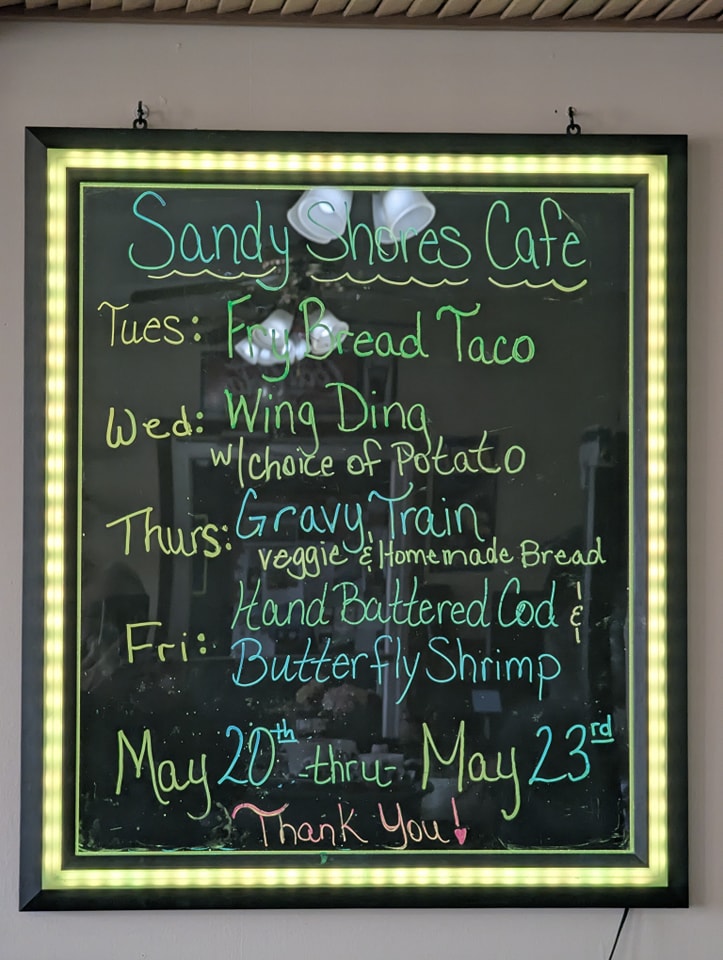 Sandy Shores Cafe
Tues: Fry Bread Taco
Wed: Wing Ding
w/choice of Potato
Thurs: Gravy Train
veggie & Homemade Bread
Fri: Hand Battered Cod &
Butterfly Shrimp
May 20th -thru- May 23rd
Thank You!